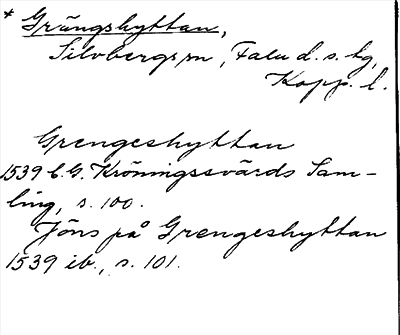 * Grängshyttan,
Silvbergs sn, Falu d. s. tg,
Kopp. l.
Grengeshyttan
1539 C. G. Kröningssvärds Sam-
ling, s. 100.
Jöns på Grengeshyttan
1539 ib., s. 101.